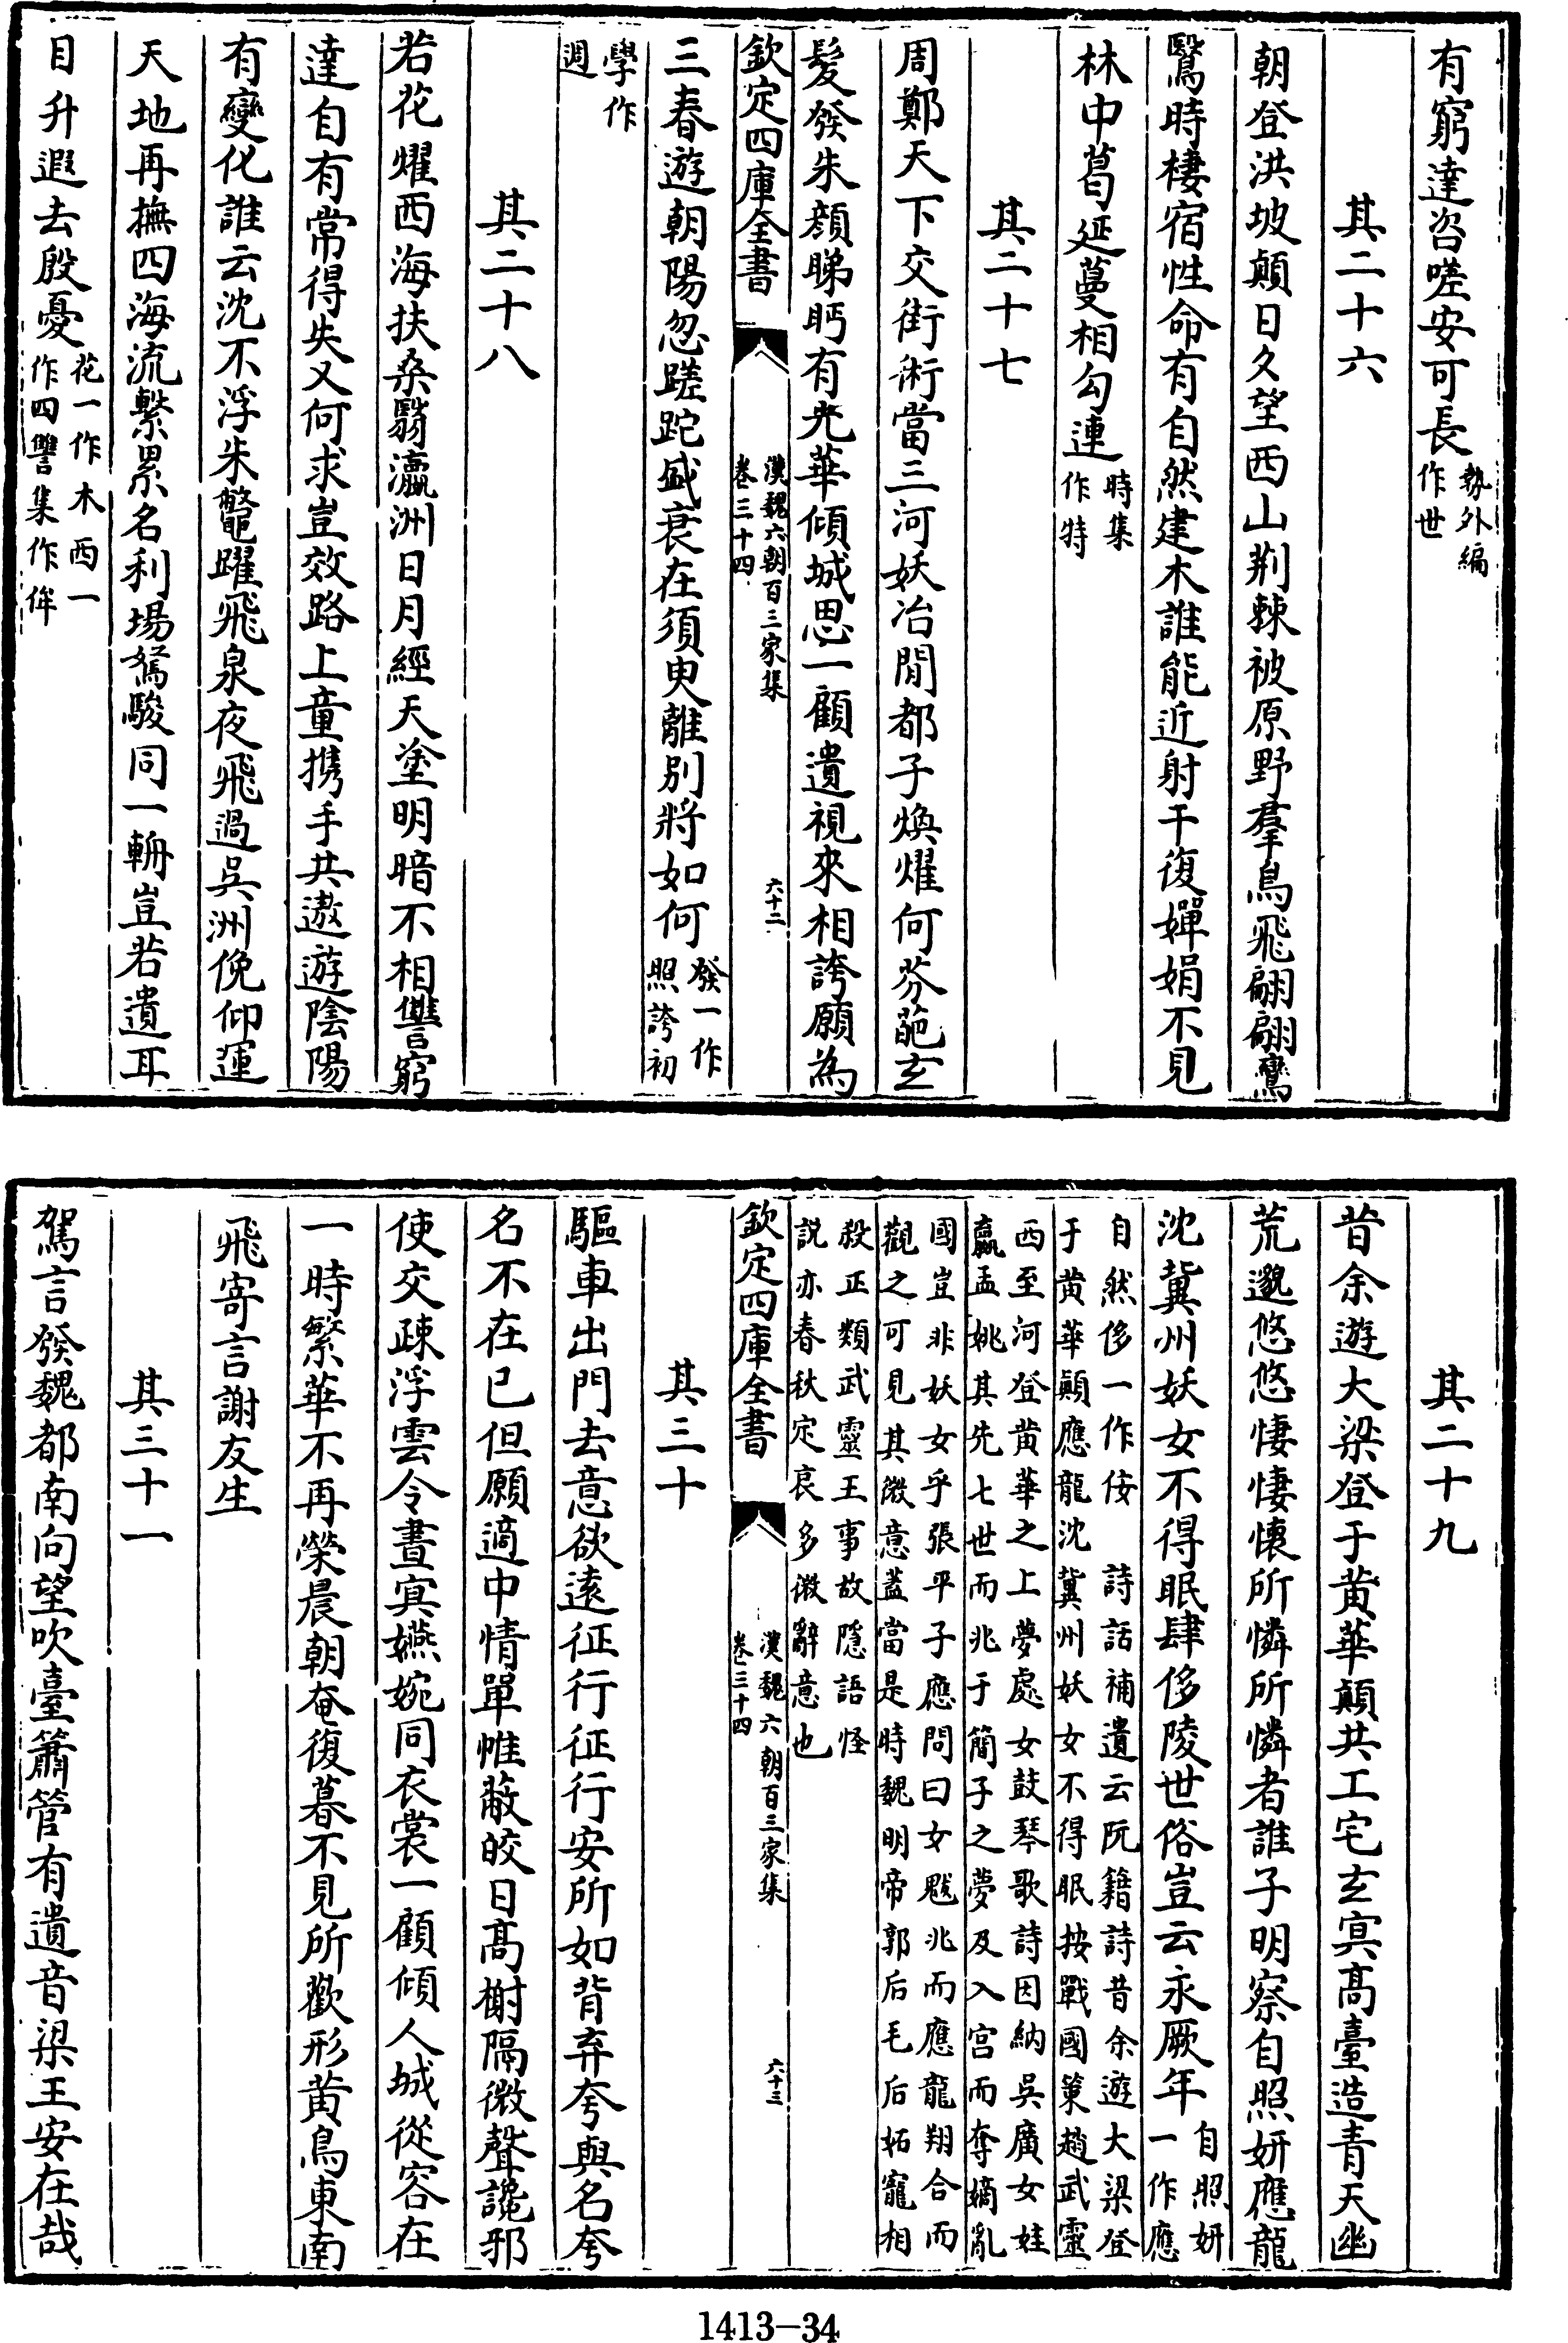 有窮達咨嗟安可長執外編作世
其二十六
朝登洪坡顛日夕望西山荆棘被原野羣鳥飛翩翩鸞
鷖時棲宿性命有自然建木誰能近射干復嬋娟不見
林中葛延蔓相勾連時集作特
其二十七
周鄭天下交街術當三河妖冶閒都子煥燿何芬葩玄
髮發朱顔睇眄有光華傾城思一顧遺視來相誇願為
欽定四庫全書 漢魏六朝百三家集卷三十四 六十二
三春遊朝陽忽蹉跎盛衰在須臾離别將如何發一作照誇初
學作迵
其二十八
若花燿西海扶桑翳瀛洲日月經天塗明暗不相讐窮
達自有常得失又何求豈效路上童携手共遨遊陰陽
有變化誰云沈不浮朱鼈躍飛泉夜飛過吳洲俛仰運
天地再撫四海流繫累名利場駑駿同一輈豈若遺耳
目升遐去殷憂花一作木西一作四讐集作侔
其二十九
昔余遊大梁登于黄華顛共工宅玄冥髙臺造青天幽
荒邈悠悠悽悽懐所憐所憐者誰子明察自照妍應龍
沈冀州妖女不得眠肆侈陵世俗豈云永厥年自照妍一作應
自然侈一作侒 詩話補遺云阮籍詩昔余遊大梁登于黄華顛應龍沈冀州妖女不得眠按戰國策趙武靈
西至河登黄華之上夢處女鼓琴歌詩因納吳廣女娃嬴孟姚其先七世而兆于簡子之夢及入宫而奪嫡亂
國豈非妖女乎張平子應問曰女魃兆而應龍翔合而觀之可見其微意蓋當是時魏明帝郭后毛后妬寵相
殺正類武靈王事故隱語怪説亦春秋定哀多微辭意也
欽定四庫全書 漢魏六朝百三家集卷三十四 六十三
其三十
驅車出門去意欲遠征行征行安所如背弃夸與名夸
名不在已但願適中情單帷蔽皎日髙榭隔微聲讒邪
使交疎浮雲令晝冥嬿婉同衣裳一顧傾人城從容在
一時繁華不再榮晨朝奄復暮不見所歡形黄鳥東南
飛寄言謝友生
其三十一
駕言發魏都南向望吹臺簫管有遺音梁王安在哉
1413-34